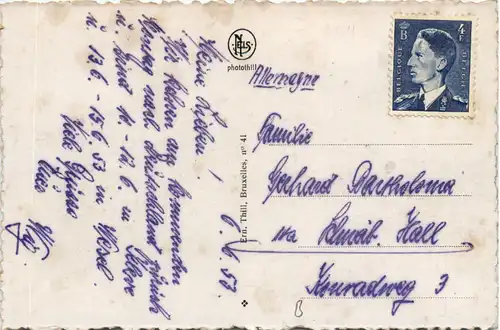 Meine Lieben!
6.6.53
Wir kehren am kommenden
Montag nach Deutschland zurück
u. sind 10.-12.6. in
u. 13.6.-15.6.53 in
Viele Grüsse
NELS
photothill
Ern. Thill, Bruxelles, nº 41
BELGIQUE
BELGIË
4F
B
Allemagne
Familie
Gerhard Bartholomä
Schwäb. Hall
Konradweg 3
B